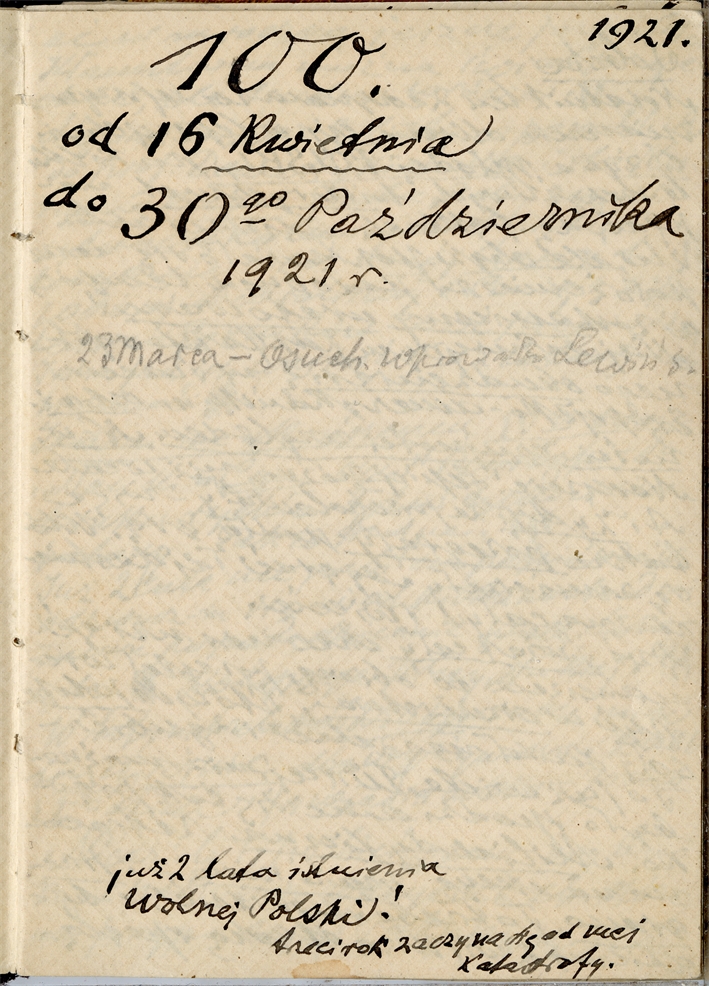 1921.
100.
od 16 Kwietnia
do 30go Października
1921 r.
23 Marca – Osuch. wprowadza
już 2 lata istnienia
Wolnej Polski!
trzeci rok zaczyna się od mej
Katastrofy.